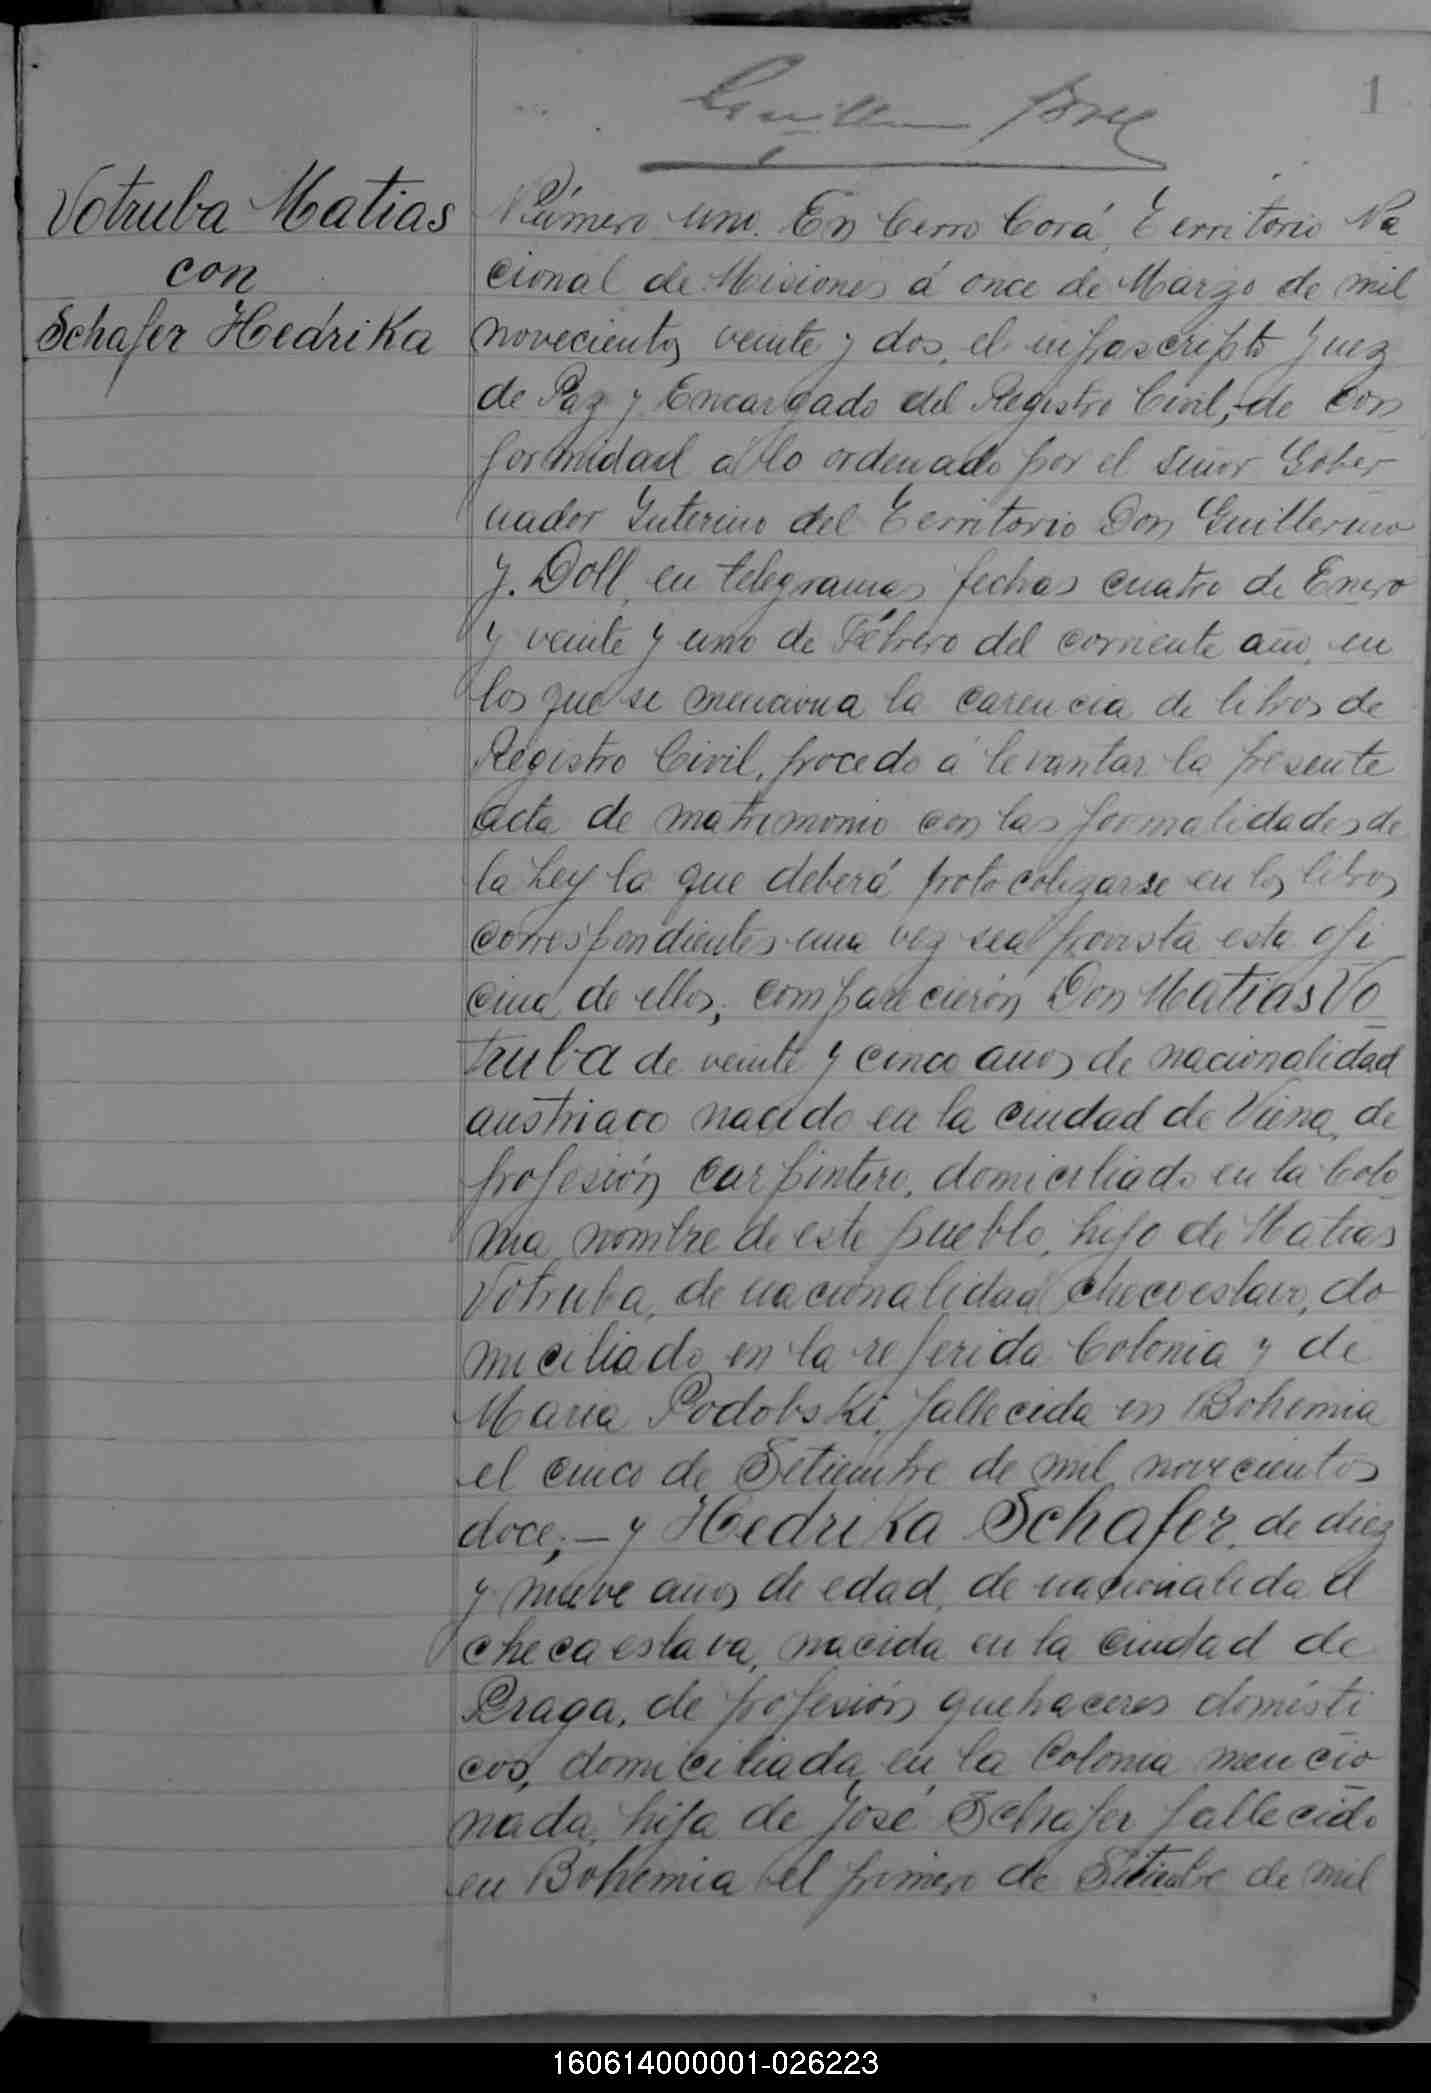 1
Votruba Matias
con
Schafer Hedrika
Número uno. En Cerro Corá, Territorio Na
cional de Misiones á once de Marzo de mil
novecientos veinte y dos, el infrascripto Juez
de Paz y Encargado del Registro Civil, de con
formidad a lo ordenado por el Señor Gober
nador Interino del Territorio Don Guillermo
J. Doll, en telegramas fechas cuatro de Enero
y veinte y uno de Fébrero del corriente año, en
los que se menciona la carencia de libros de
Registro Civil, procedo á levantar la presente
acta de matrimonio con las formalidades de
la Ley la que deberá protocolizarse en los libros
correspondientes una vez sea provista esta ofi
cina de ellos; comparecierón Don Matias Vo
truba de veinte y cinco años de nacionalidad
austriaco nacido en la ciudad de Viena, de
profesión carpintero, domiciliado en la Colo
nia nombre de este pueblo, hijo de Matias
Votruba, de nacionalidad checoeslavo, do
miciliado en la referida Colonia y de
Maria Podobski, fallecida en Bohemia
el cinco de Setiembre de mil novecientos
doce; — y Hedrika Schafer, de diez
y nueve años de edad, de nacionalidad
checaeslava, nacida en la ciudad de
Praga, de profesión quehaceres domésti
cos, domiciliada en la Colonia mencio
nada, hija de José Schafer fallecido
en Bohemia el primero de Setiembre de mil
160614000001-026223